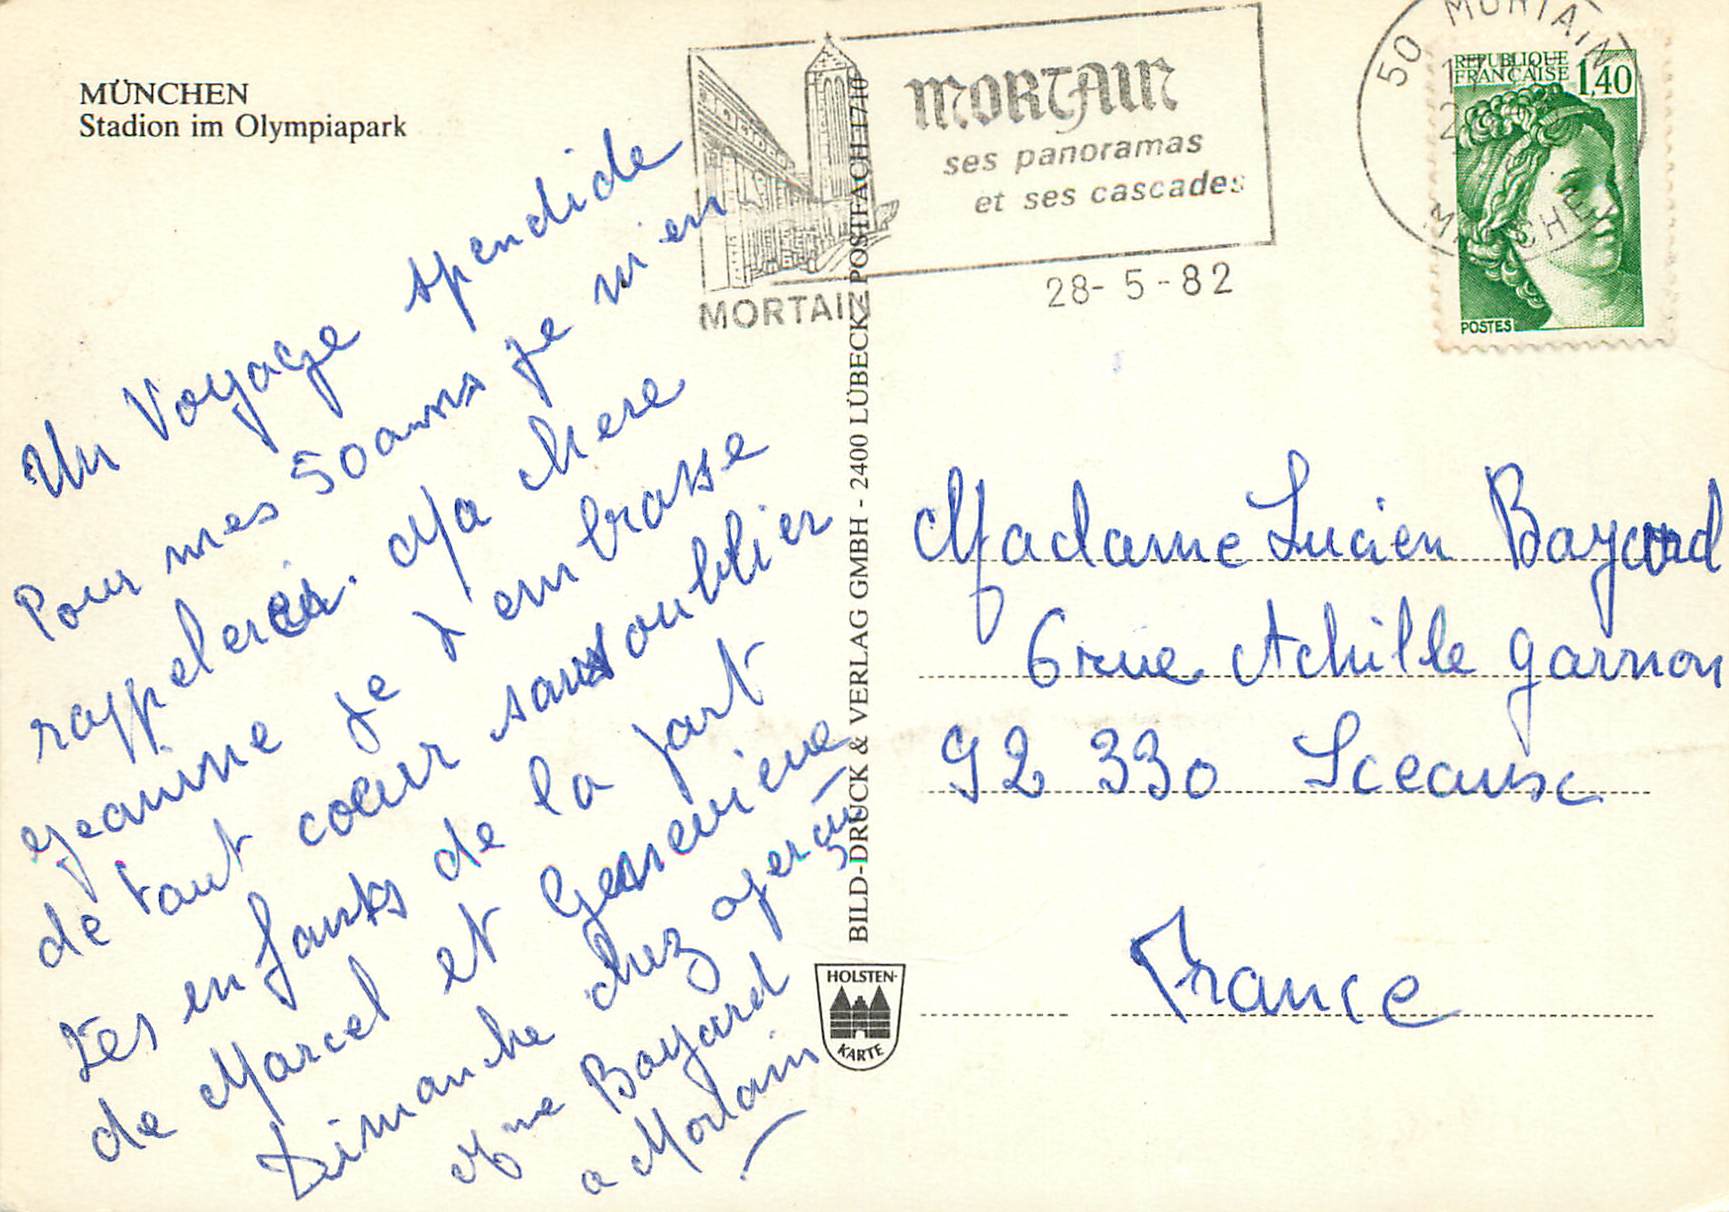 MÜNCHEN
Stadion im Olympiapark
Un Voyage spendide
Pour mes 50 anns je m'en
rappelerai. Ma chere
Jeanine je t'embrasse
de tout cœur sans oublier
Les enfants de la part
de Marcel et Genevieve
Dimanche chez
Mme Bayard
a Mortain
BILD-DRUCK & VERLAG GMBH - 2400 LÜBECK, POSTFACH 1710
HOLSTEN-
KARTE
MORTAIN
mortain
ses panoramas
et ses cascades
28- 5 -82
50 MORTAIN
MANCHE
REPUBLIQUE
FRANÇAISE 1,40
POSTES
Madame Lucien Bayard
6 rue Achille Garnon
92 330 Sceaux
France